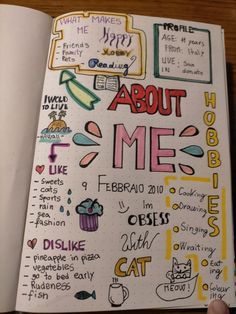 WHAT MAKES
ME Happy
- Friends
- Family
- Pets
Reading
PROFILE
AGE: 11 years
FROM: Italy
LIVE: San
IN donato
I WOULD
TO LIVE
ABOUT
ME
HOBBIES
LIKE
- sweets
- cats
- sports
- rain
- sea
- fashion
9 FEBBRAIO 2010
Im
OBSESS
With
CAT
MEOW!
Cooking
Drawing
Singing
Eating
Colouring
DISLIKE
- pineapple in pizza
- vegetebles
- go to bed early
- Rudeness
- fish